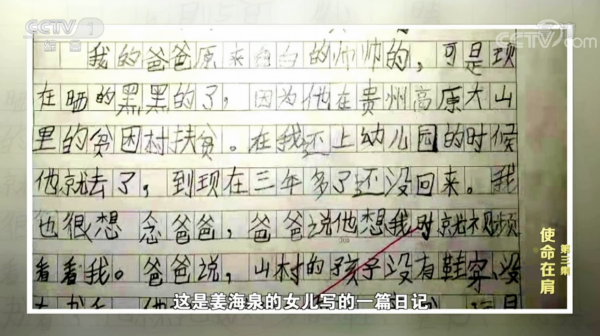 CCTV 1
综合
CCTV.com
我的爸爸原来白白的帅帅的，可是现
在晒的黑黑的了，因为他在贵州高原大山
里的贫困村扶贫。在我还上幼儿园的时候
他就去了，到现在三年多了还没回来。我
也很想念爸爸，爸爸说他想我时就视频
看看我。爸爸说，山村的孩子没有鞋穿没
这是姜海泉的女儿写的一篇日记
第三集
使命在肩